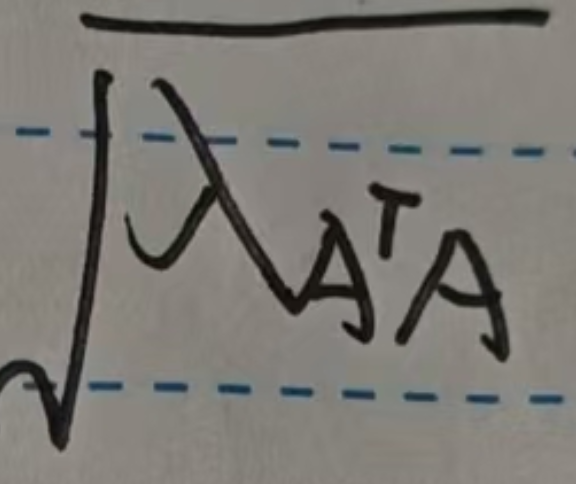 $\sqrt{\lambda_{A^T A}}$